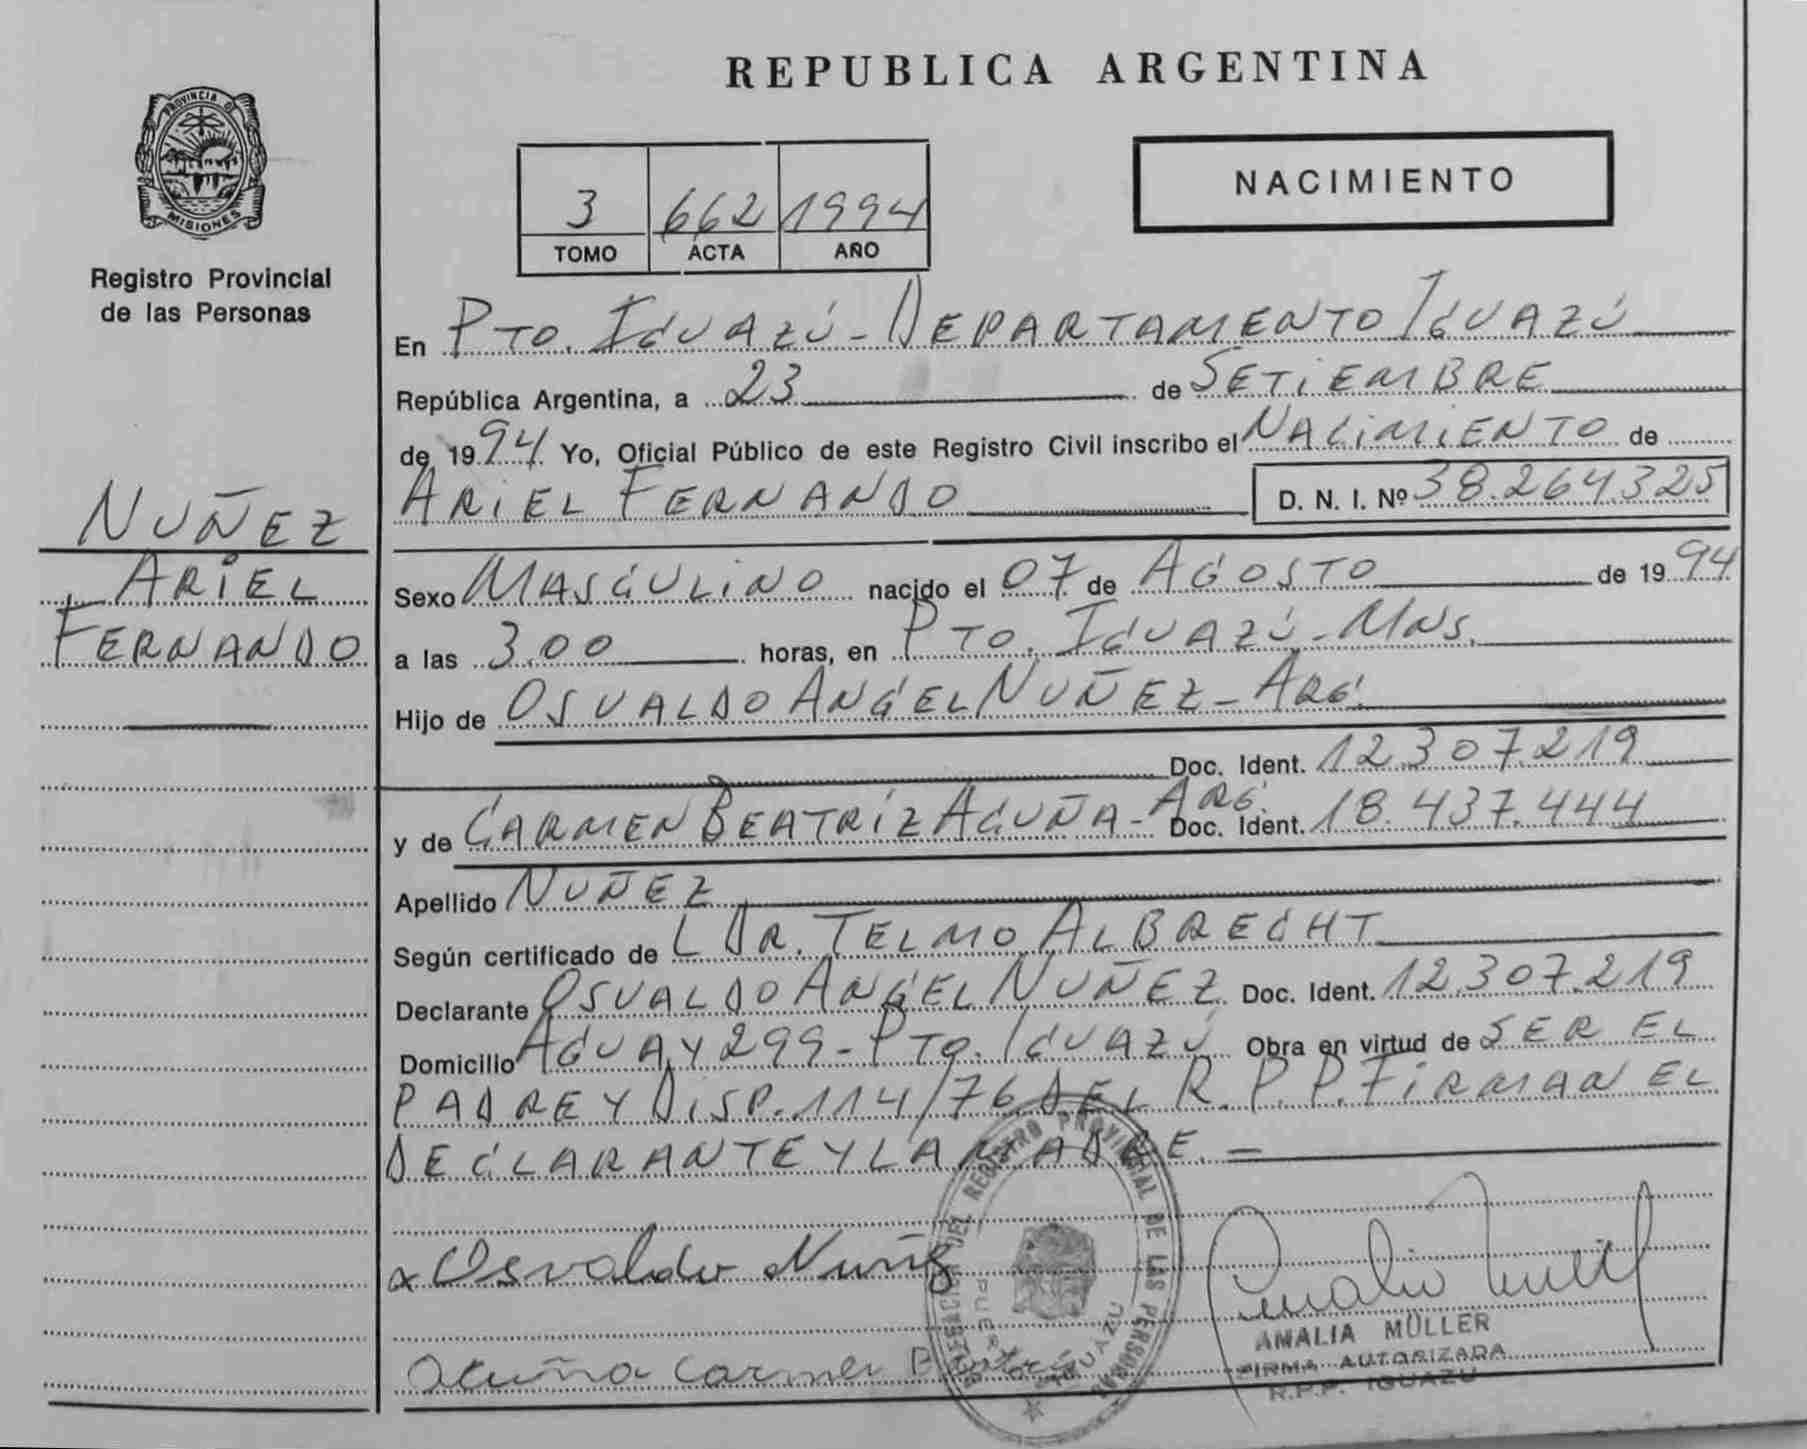 REPUBLICA ARGENTINA
PROVINCIA DE
MISIONES
Registro Provincial
de las Personas
3 662 1994
TOMO ACTA AÑO
NACIMIENTO
En PTO. IGUAZÚ - DEPARTAMENTO IGUAZÚ
República Argentina, a 23 de SETIEMBRE
de 1994 Yo, Oficial Público de este Registro Civil inscribo el NACIMIENTO de
ARIEL FERNANDO D. N. I. Nº 38.264.325
NUÑEZ
ARIEL
FERNANDO
Sexo MASCULINO nacido el 07 de AGOSTO de 1994
a las 3.00 horas, en PTO. IGUAZÚ - MNS.
Hijo de OSVALDO ANGEL NUÑEZ - ARG.
Doc. Ident. 12.307.219
y de CARMEN BEATRÍZ ACUÑA - ARG. Doc. Ident. 18.437.444
Apellido NUÑEZ
Según certificado de L DR. TELMO ALBRECHT
Declarante OSVALDO ANGEL NUÑEZ Doc. Ident. 12.307.219
Domicilio AGUAY 299 - PTO. IGUAZÚ Obra en virtud de SER EL
PADRE Y DISP. 114/76 DEL R. P. P. FIRMAN EL
DECLARANTE Y LA MADRE. =
x Osvaldo Nuñez
Acuña Carmen Beatriz
DEL REGISTRO PROVINCIAL DE LAS PERSONAS
IGUAZU
AMALIA MÜLLER
FIRMA AUTORIZADA
R.P.P. IGUAZU